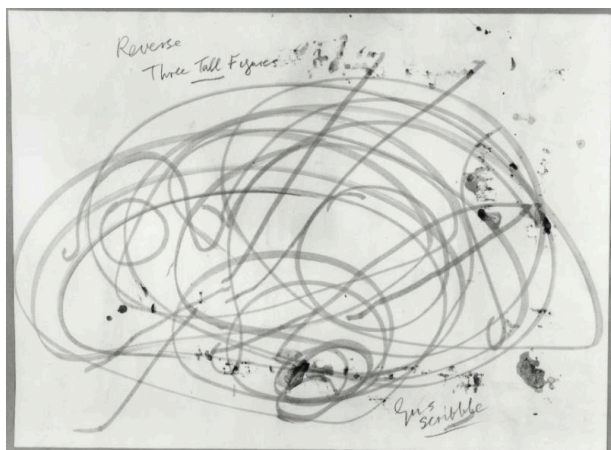 Reverse
Three Tall Figures
Gus
scribble